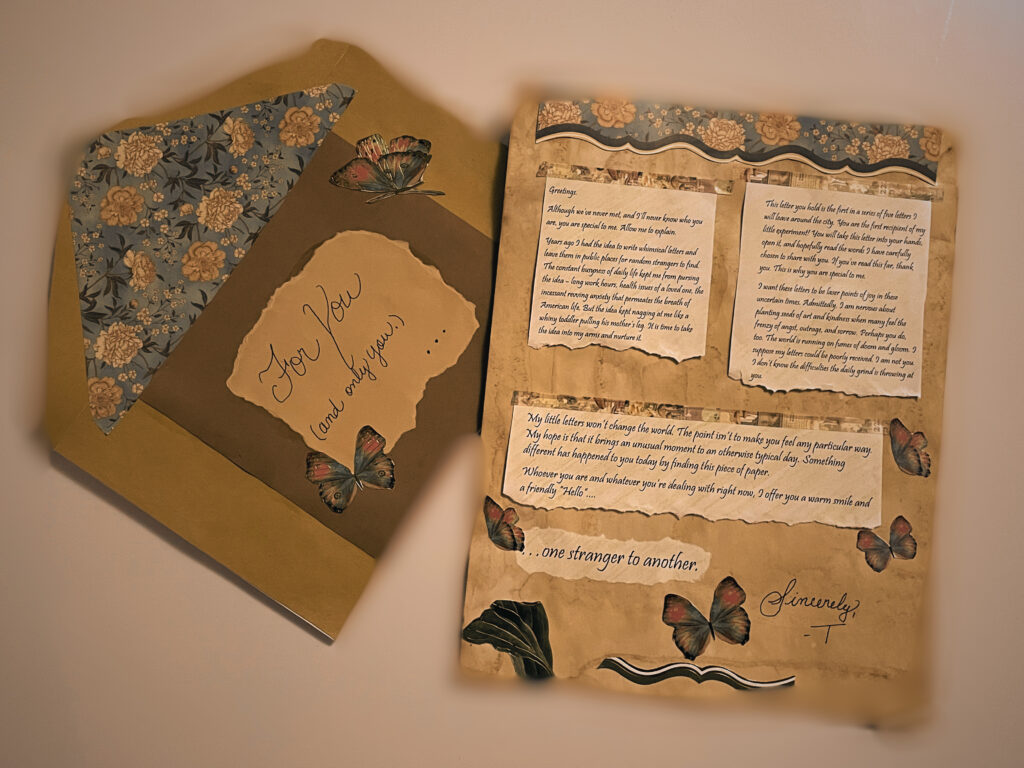 For You
(and only you.)
...
Greetings.
Although we've never met, and I'll never know who you
are, you are special to me. Allow me to explain.
Years ago I had the idea to write whimsical letters and
leave them in public places for random strangers to find.
The constant busyness of daily life kept me from pursing
the idea – long work hours, health issues of a loved one, the
incessant revving anxiety that permeates the breath of
American life. But the idea kept nagging at me like a
whiny toddler pulling his mother's leg. It is time to take
the idea into my arms and nurture it.
This letter you hold is the first in a series of five letters I
will leave around the city. You are the first recipient of my
little experiment! You will take this letter into your hands,
open it, and hopefully read the words I have carefully
chosen to share with you. If you've read this far, thank
you. This is why you are special to me.
I want these letters to be laser points of joy in these
uncertain times. Admittedly, I am nervous about
planting seeds of art and kindness when many feel the
frenzy of angst, outrage, and sorrow. Perhaps you do,
too. The world is running on fumes of doom and gloom. I
suppose my letters could be poorly received. I am not you.
I don't know the difficulties the daily grind is throwing at
you.
My little letters won't change the world. The point isn't to make you feel any particular way.
My hope is that it brings an unusual moment to an otherwise typical day. Something
different has happened to you today by finding this piece of paper.
Whoever you are and whatever you're dealing with right now, I offer you a warm smile and
a friendly "Hello"....
...one stranger to another.
Sincerely,
-T